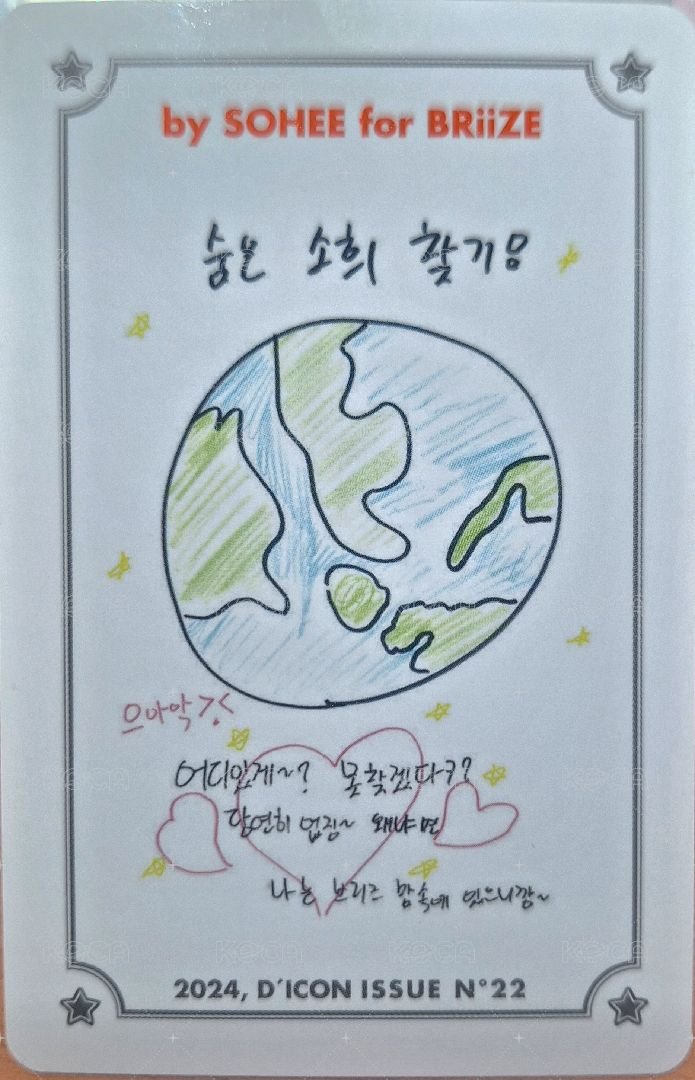 by SOHEE for BRiiZE
숨은 소희 찾기!
으아악 >.<
어디있게~? 못찾겠다구?
당연히 없징~ 왜냐면
나는 브리즈 맘속에 있으니깡~
2024, D'ICON ISSUE N°22